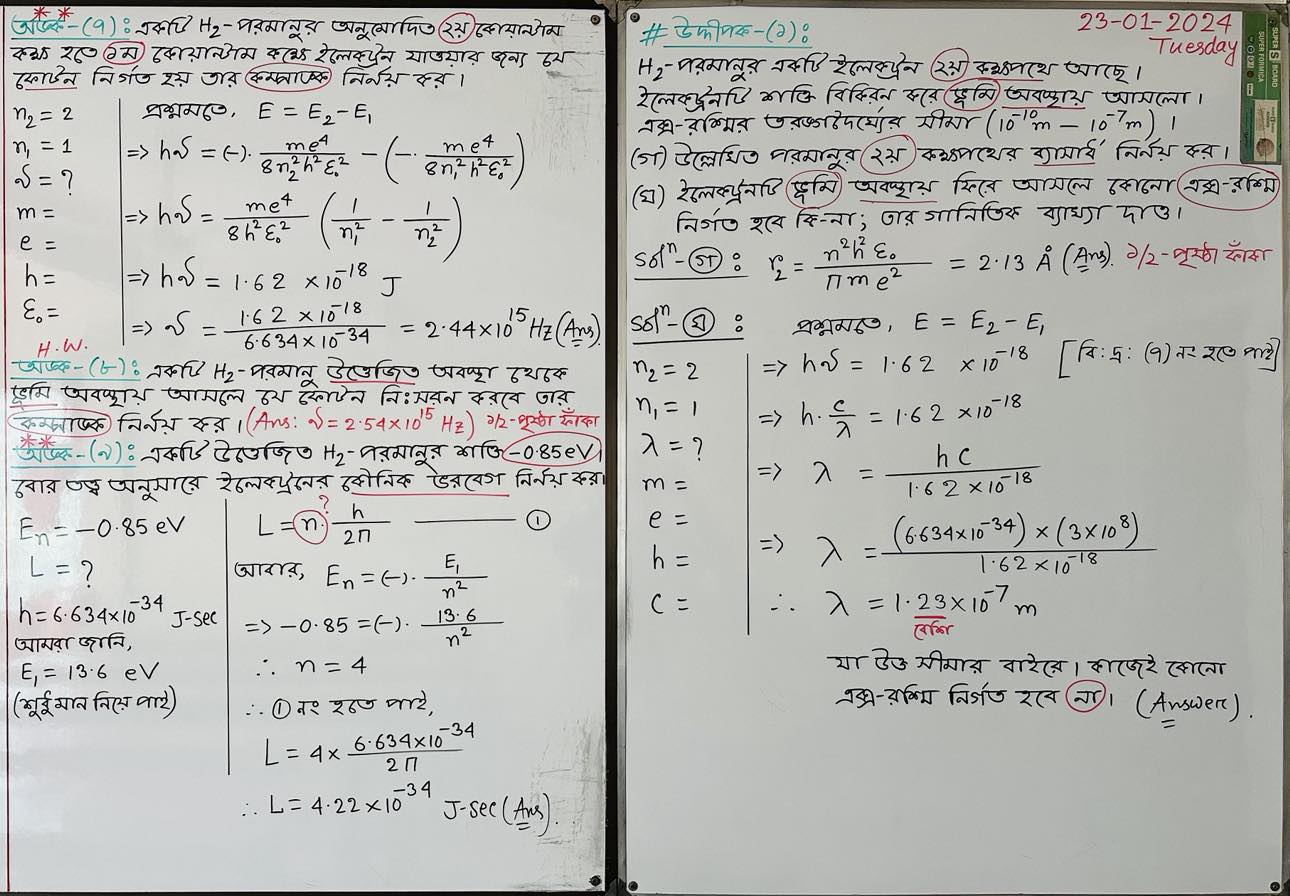 অঙ্ক-(৭): একটি H₂-পরমানুর অনুমোদিত ২য় কোয়ান্টাম
কক্ষ হতে ১ম কোয়ান্টাম কক্ষে ইলেকট্রন যাওয়ার জন্য যে
ফোটন নির্গত হয় তার কম্পাঙ্ক নির্নয় কর।
n₂ = 2
n₁ = 1
ν = ?
m =
e =
h =
ε₀ =
প্রশ্নমতে, E = E₂ - E₁
=> hν = (-). me⁴/8n₂²h²ε₀² - (-. me⁴/8n₁²h²ε₀²)
=> hν = me⁴/8h²ε₀² (1/n₁² - 1/n₂²)
=> hν = 1.62 × 10⁻¹⁸ J
=> ν = 1.62 × 10⁻¹⁸/6.634 × 10⁻³⁴ = 2.44 × 10¹⁵ Hz (Ans)
H.W.
অঙ্ক-(৮): একটি H₂-পরমানু উত্তেজিত অবস্থা থেকে
ভূমি অবস্থায় আসলে যে ফোটন নিঃসরন করবে তার
কম্পাঙ্ক নির্নয় কর। (Ans: ν = 2.54 × 10¹⁵ Hz) ১/২-পৃষ্ঠা ফাঁকা
অঙ্ক-(৯): একটি উত্তেজিত H₂-পরমানুর শক্তি -0.85 eV।
বোর তত্ত্ব অনুসারে ইলেকট্রনের কৌনিক ভরবেগ নির্নয় কর।
Eₙ = -0.85 eV
L = ?
h = 6.634 × 10⁻³⁴ J-sec
আমরা জানি,
E₁ = 13.6 eV
(শুধু মান নিয়ে পাই)
?
L = n. h/2π ——— ①
আবার, Eₙ = (-). E₁/n²
=> -0.85 = (-). 13.6/n²
∴ n = 4
∴ ① নং হতে পাই,
L = 4 × 6.634 × 10⁻³⁴/2π
∴ L = 4.22 × 10⁻³⁴ J-sec (Ans).
23-01-2024
Tuesday
# উদ্দীপক-(১):
H₂-পরমানুর একটি ইলেকট্রন ২য় কক্ষপথে আছে।
ইলেকট্রনটি শক্তি বিকিরন করে ভূমি অবস্থায় আসলো।
এক্স-রশ্মির তরঙ্গদৈর্ঘ্যের সীমা (10⁻¹⁰m - 10⁻⁷m)।
(গ) উল্লেখিত পরমানুর ২য় কক্ষপথের ব্যাসার্ধ নির্নয় কর।
(ঘ) ইলেকট্রনটি ভূমি অবস্থায় ফিরে আসলে কোনো এক্স-রশ্মি
নির্গত হবে কি-না; তার গানিতিক ব্যাখ্যা দাও।
solⁿ-(গ): r₂ = n²h²ε₀/πme² = 2.13 Å (Ans). ১/২-পৃষ্ঠা ফাঁকা
solⁿ-(ঘ): প্রশ্নমতে, E = E₂ - E₁
n₂ = 2
n₁ = 1
λ = ?
m =
e =
h =
c =
=> hν = 1.62 × 10⁻¹⁸ [বি:দ্র: (৭) নং হতে পাই]
=> h. c/λ = 1.62 × 10⁻¹⁸
=> λ = hc/1.62 × 10⁻¹⁸
=> λ = (6.634 × 10⁻³⁴) × (3 × 10⁸)/1.62 × 10⁻¹⁸
∴ λ = 1.23 × 10⁻⁷ m
বেশি
যা উক্ত সীমার বাইরে। কাজেই কোনো
এক্স-রশ্মি নির্গত হবে না। (Answer).
SUPER S BOARD
SUPER FORMICA